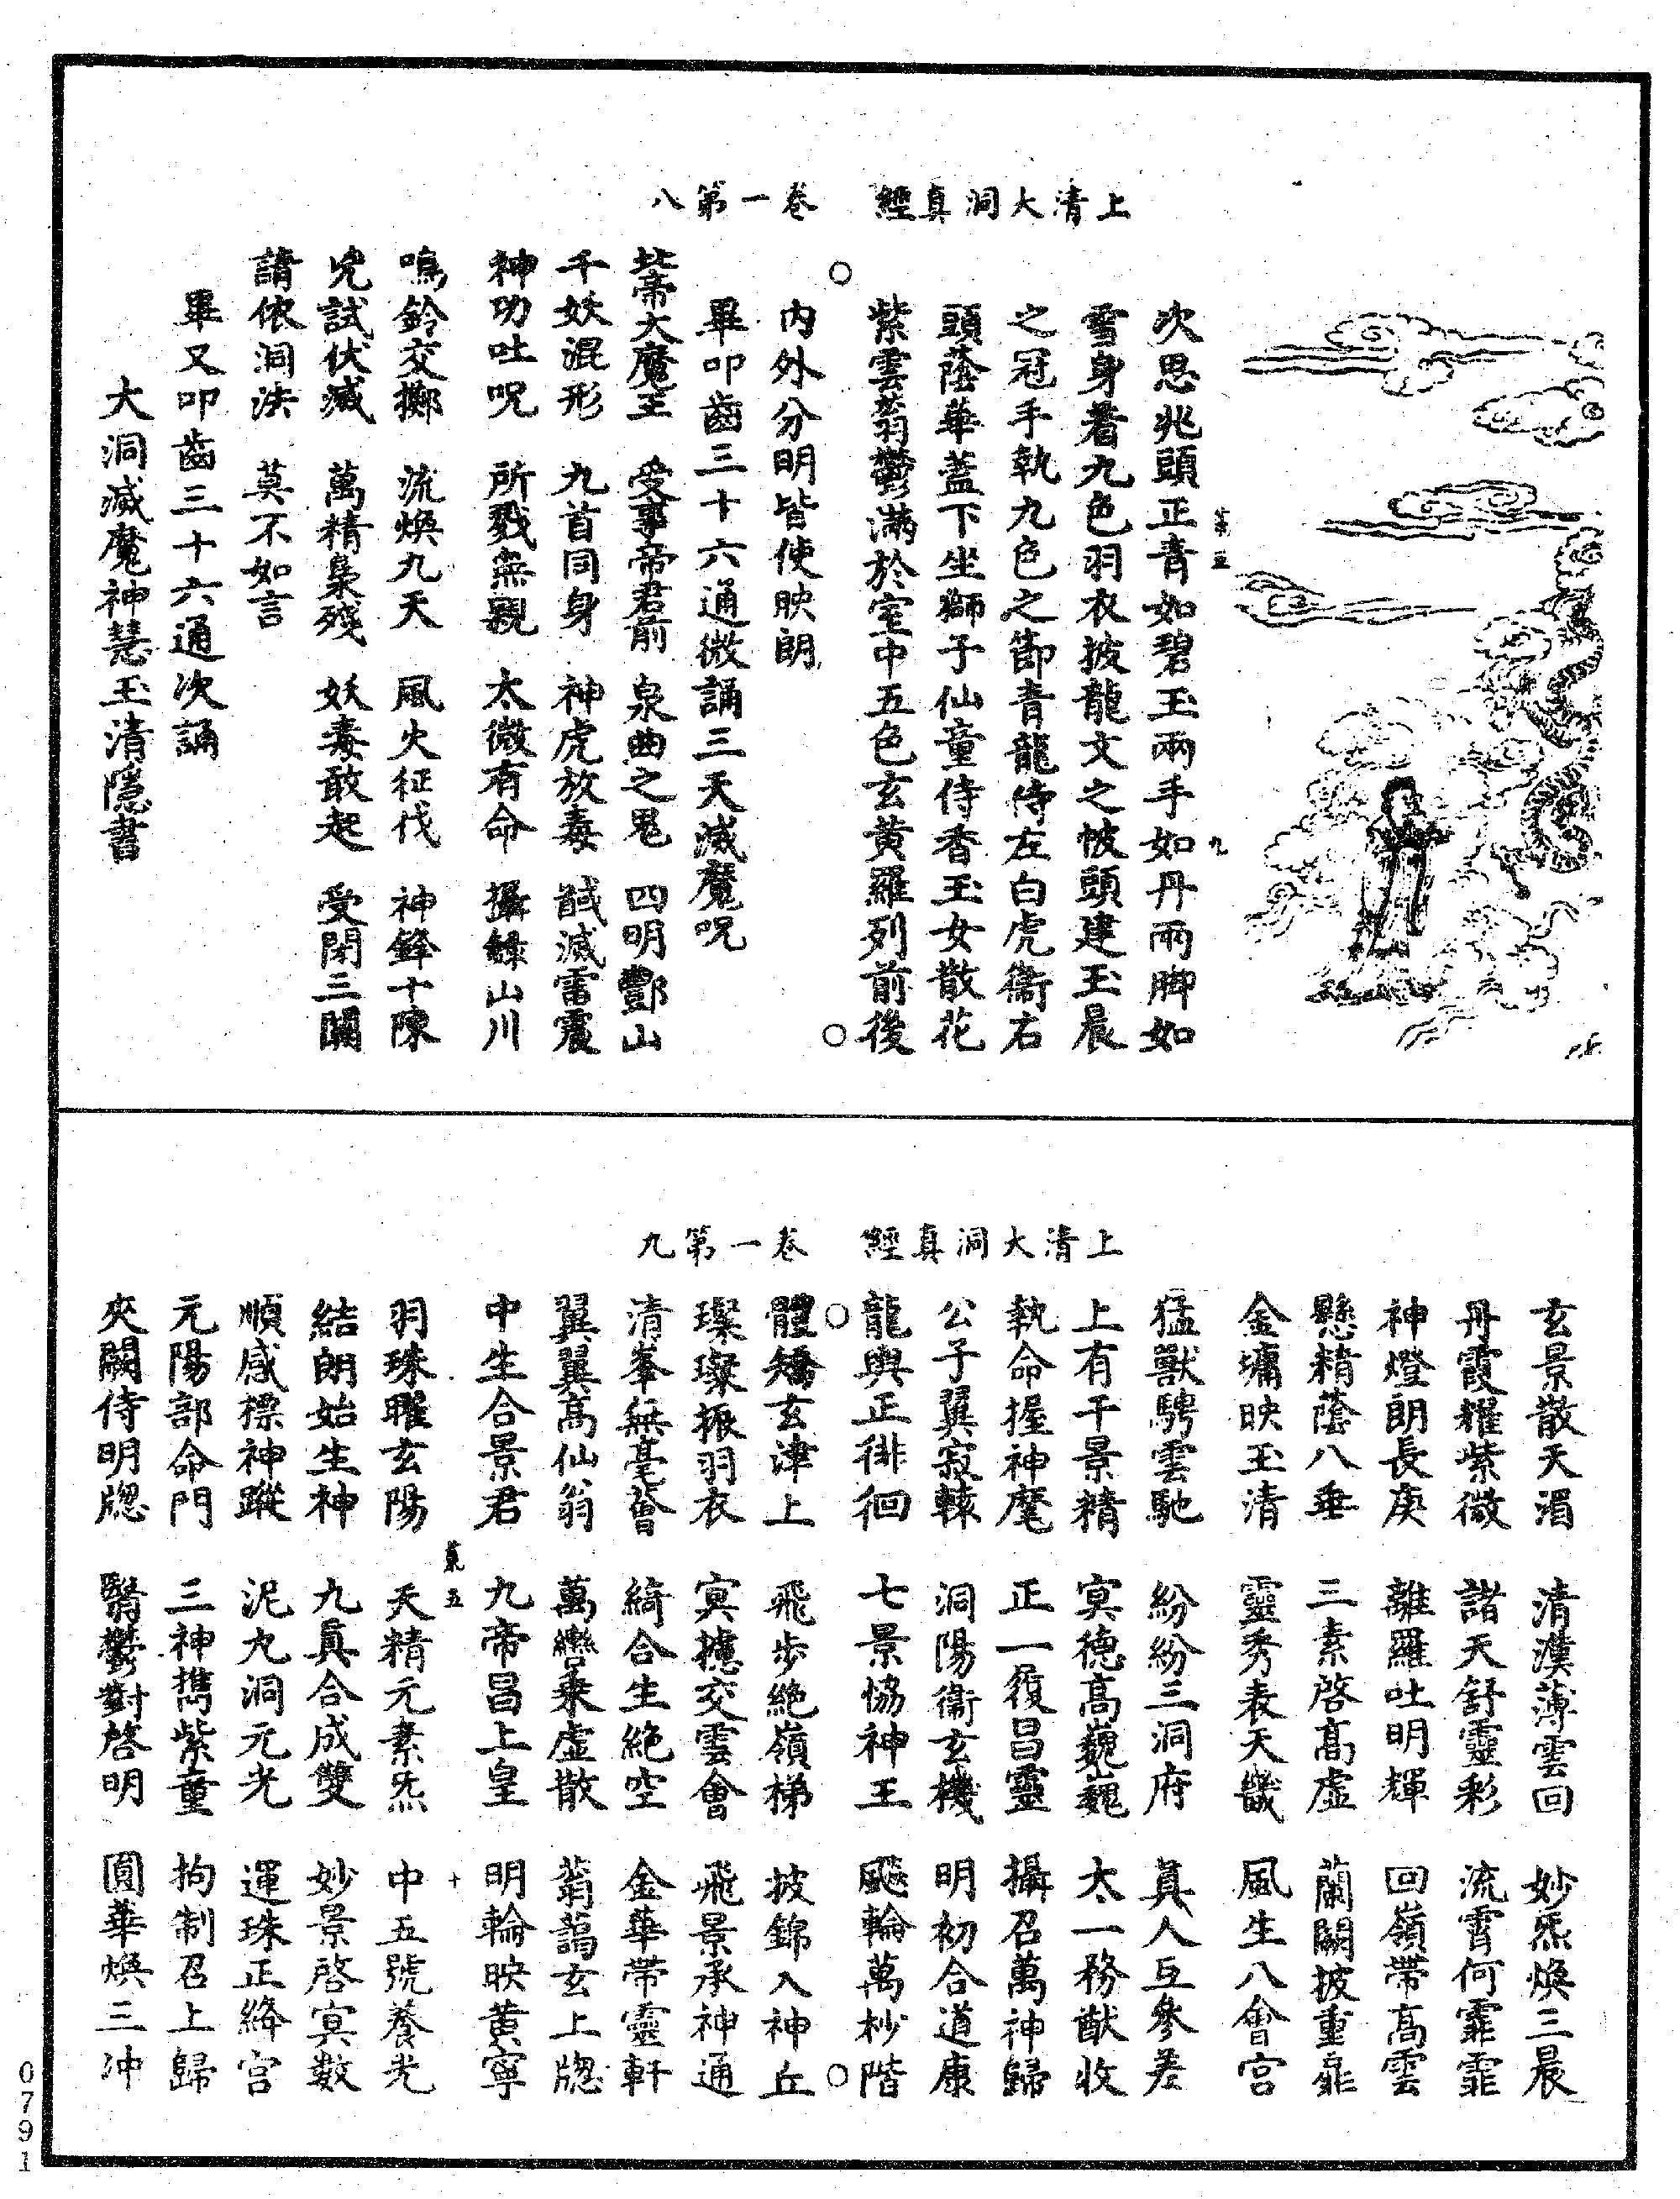 上清大洞真經　卷一第八
次思兆頭正青如碧玉兩手如丹兩脚如
雪身著九色羽衣披龍文之帔頭建玉晨
之冠手執九色之節青龍侍左白虎衛右
頭蔭華蓋下坐獅子仙童侍香玉女散花
紫雲蓊鬱滿於室中五色玄黃羅列前後
內外分明皆使映朗
畢叩齒三十六通微誦三天滅魔呪
北帝大魔王　受事帝君前　泉曲之鬼　四明酆山
千妖混形　九首同身　神虎放毒　馘滅雷震
神功吐呪　所戮無親　太微有命　攝錄山川
鳴鈴交擲　流煥九天　風火征伐　神鋒十陳
兇試伏滅　萬精梟殘　妖毒敢起　受閉三關
請依洞法　莫不如言
畢又叩齒三十六通次誦
大洞滅魔神慧玉清隱書
上清大洞真經　卷一第九
玄景散天湄　清漢薄雲回　妙炁煥三晨
丹霞耀紫微　諸天舒靈彩　流霄何霏霏
神燈朗長庚　離羅吐明輝　回嶺帶高雲
懸精蔭八垂　三素啓高虛　蘭闕披重扉
金墉映玉清　靈秀表天畿　風生八會宮
猛獸騁雲馳　紛紛三洞府　真人互參差
上有千景精　冥德高巍巍　太一務猷收
執命握神麾　正一復昌靈　攝召萬神歸
公子翼寂轅　洞陽衛玄機　明初合道康
龍輿正徘徊　七景協神王　飈輪萬杪階
體矯玄津上　飛步絶嶺梯　披錦入神丘
璨璨振羽衣　冥摅交雲會　飛景承神通
清峯無毫薈　綺合生絶空　金華帶靈軒
翼翼高仙翁　萬轡乘虛散　蓊藹玄上牕
中生合景君　九帝昌上皇　明輪映黃寧
羽珠曜玄陽　天精元素炁　中五號養光
結朗始生神　九真合成雙　妙景啓冥數
順感標神蹤　泥丸洞元光　運珠正絳宮
元陽部命門　三神擕紫童　拘制召上歸
夾闕侍明牕　翳鬱對啓明　圓華煥三沖
0791